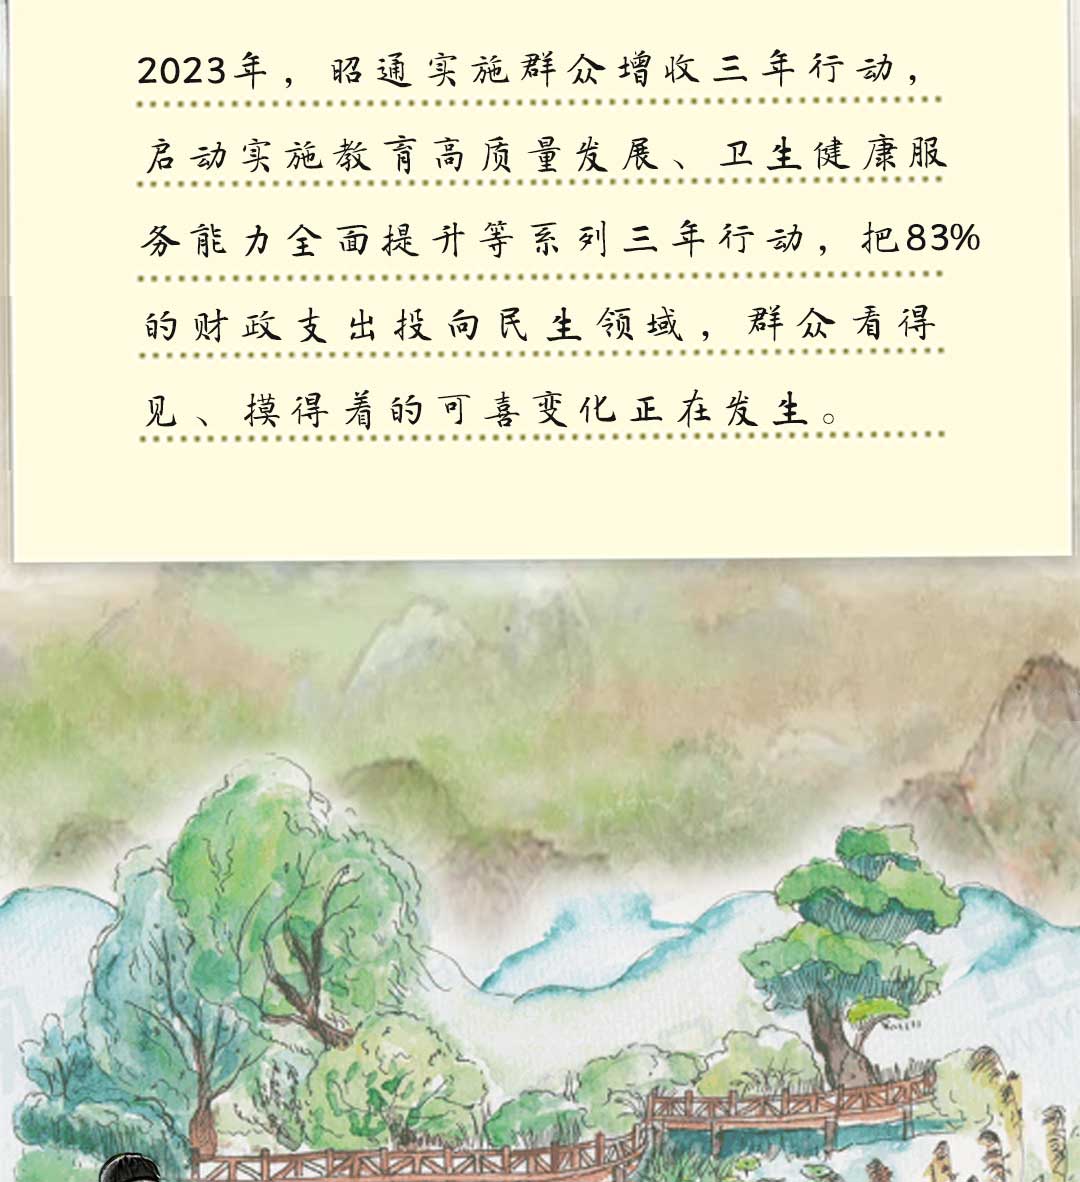 2023年，昭通实施群众增收三年行动，
启动实施教育高质量发展、卫生健康服
务能力全面提升等系列三年行动，把83%
的财政支出投向民生领域，群众看得
见、摸得着的可喜变化正在发生。